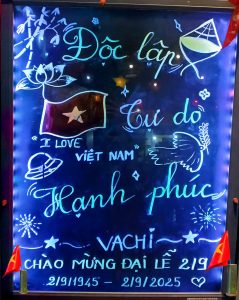 Độc lập
Tự do
"I LOVE
VIỆT NAM"
Hạnh phúc
VACHI
CHÀO MỪNG ĐẠI LỄ 2/9
2/9/1945 – 2/9/2025